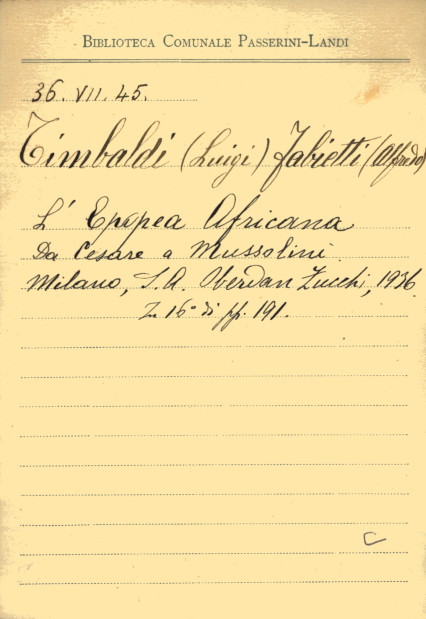 BIBLIOTECA COMUNALE PASSERINI-LANDI
36. VII. 45.
Timbaldi (Luigi) Fabietti (Alfredo)
L' Epopea Africana
Da Cesare a Mussolini.
Milano, S. A. Oberdan Zucchi, 1936.
In 16° di pp. 191.
C